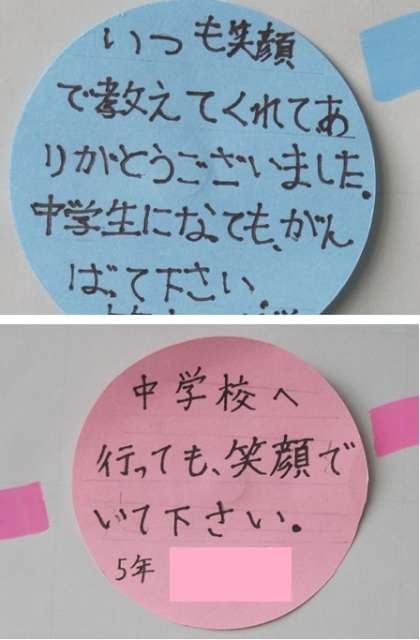 いつも笑顔
で教えてくれて、あ
りがとうございました。
中学生になっても、がん
ばって下さい。
中学校へ
行っても、笑顔で
いて下さい。
5年